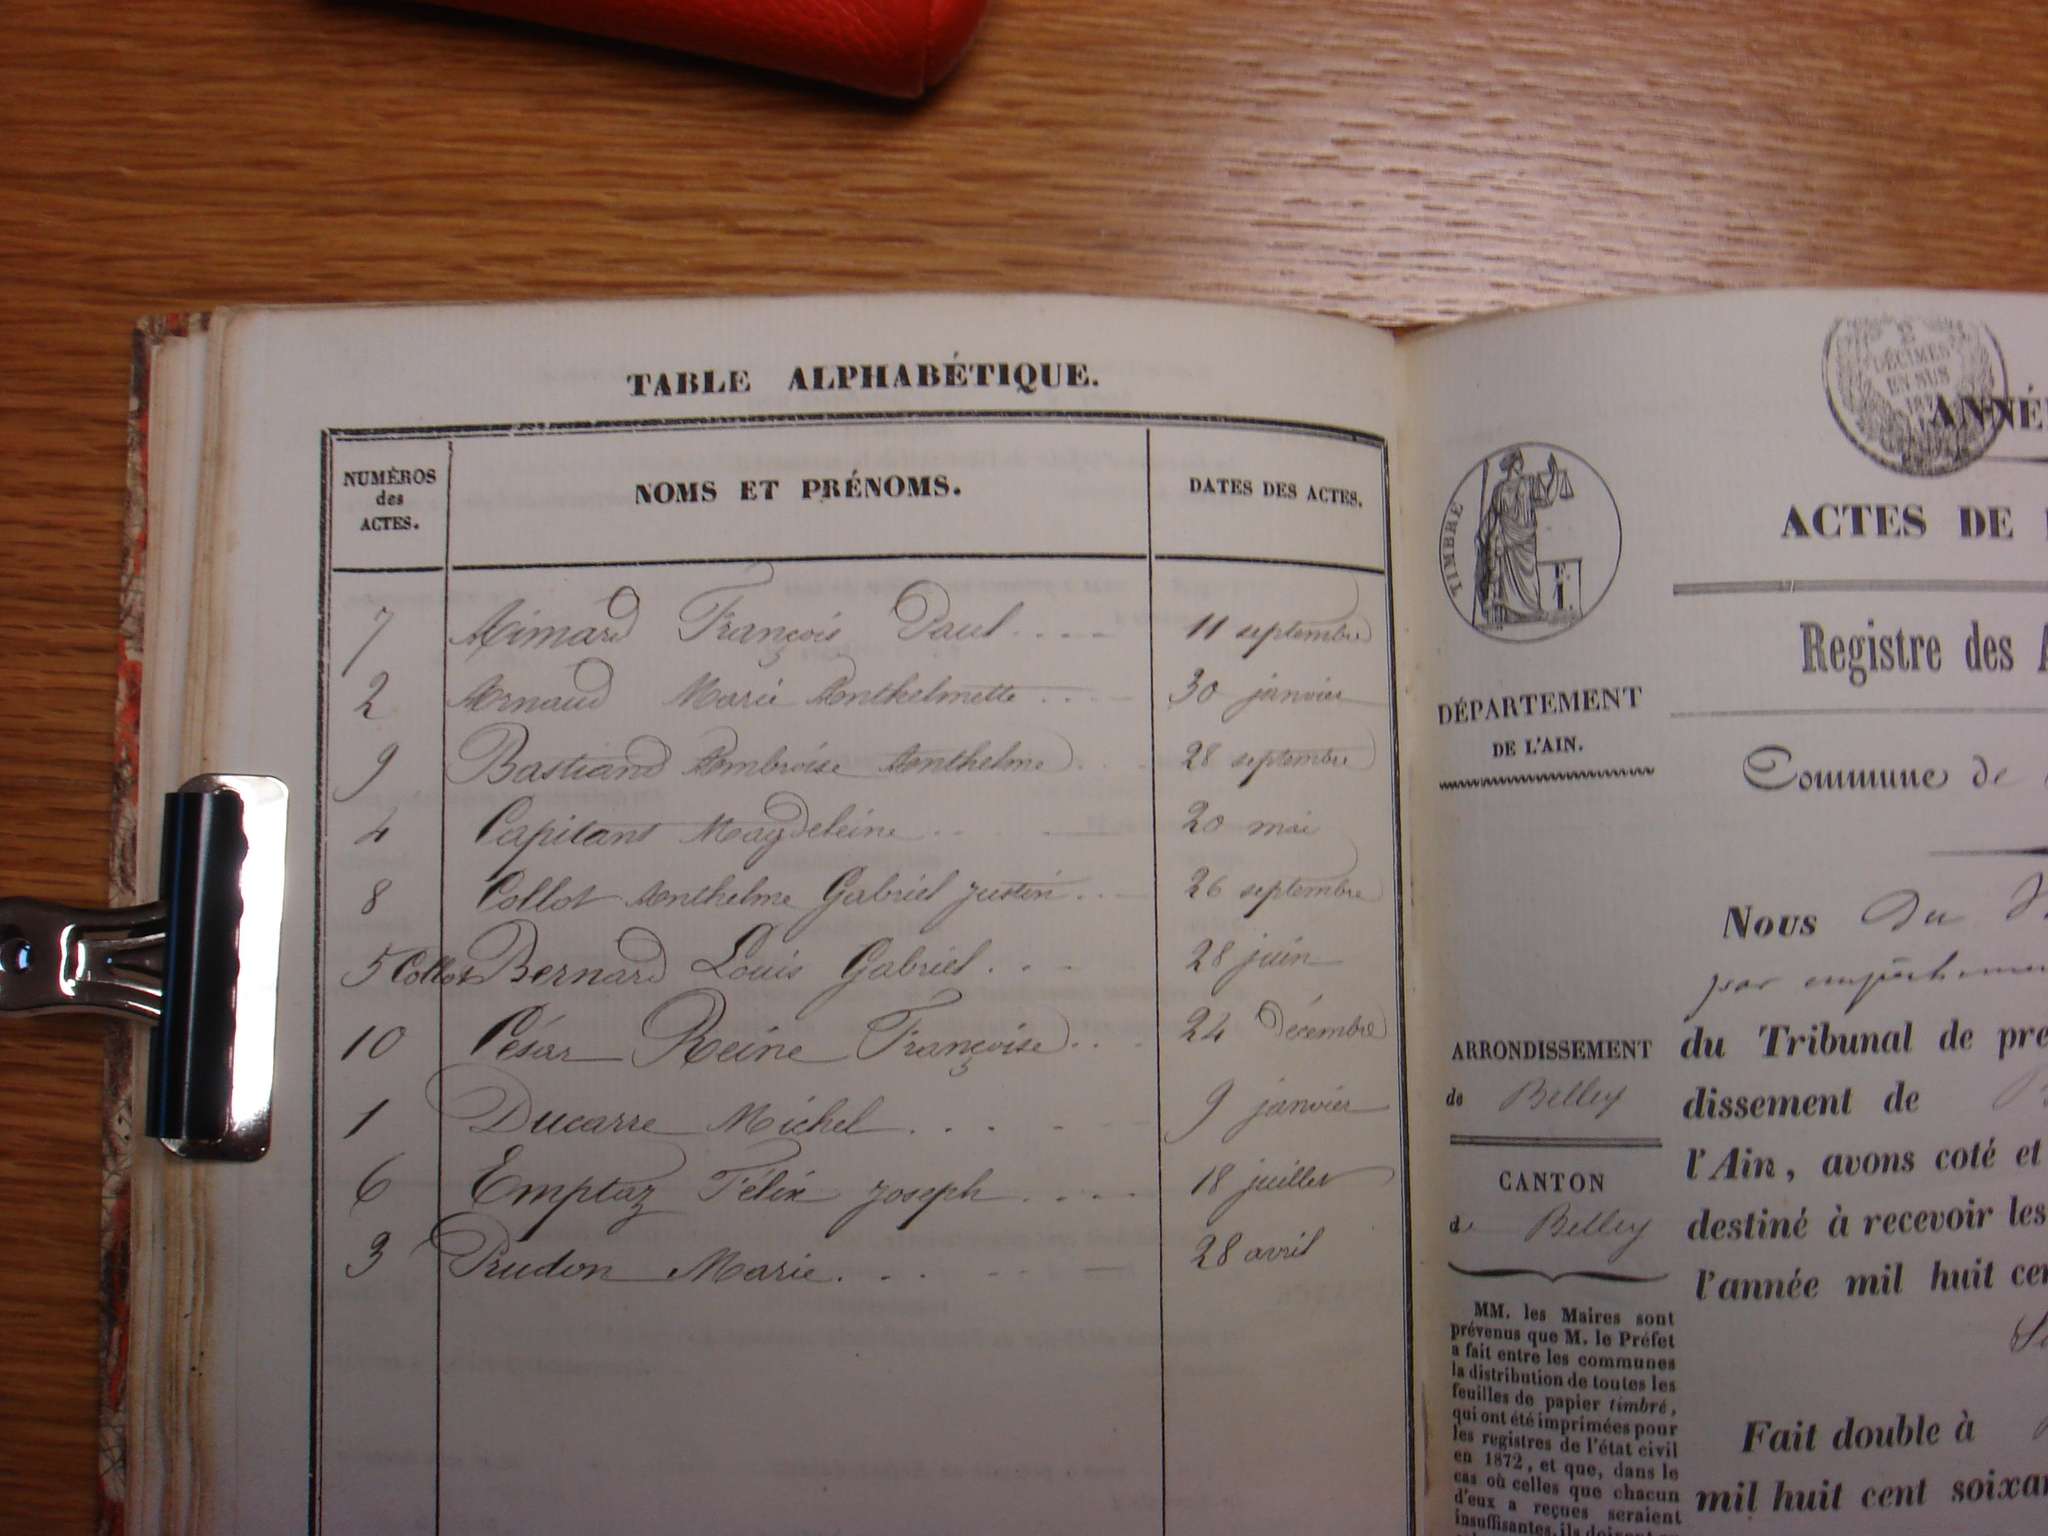 TABLE ALPHABÉTIQUE.
NUMÉROS
des
ACTES.
NOMS ET PRÉNOMS.
DATES DES ACTES.
7 Aimard François Paul 11 septembre
2 Arnaud Marie Anthelmette 30 janvier
9 Bastiand Ambroise Anthelme 28 septembre
4 Capitant Magdeleine 20 mai
8 Collot Anthelme Gabriel Justin 26 septembre
5 Collot Bernard Louis Gabriel 28 juin
10 César Reine Françoise 24 Décembre
1 Ducarre Michel 9 janvier
6 Emptaz Félix Joseph 18 juillet
3 Prudon Marie 28 avril
2
DÉCIMES
EN SUS
ANNÉ
TIMBRE
ACTES DE
Registre des A
DÉPARTEMENT
DE L'AIN.
Commune de
Nous Du
par empêchement
du Tribunal de pre
ARRONDISSEMENT
de Belley
dissement de
l'Ain, avons coté et
CANTON
de Belley
destiné à recevoir les
l'année mil huit cen
MM. les Maires sont
prévenus que M. le Préfet
a fait entre les communes
la distribution de toutes les
feuilles de papier timbré,
qui ont été imprimées pour
les registres de l'état civil
en 1872, et que, dans le
cas où celles que chacun
d'eux a reçues seraient
insuffisantes, ils doivent
Fait double à
mil huit cent soixan